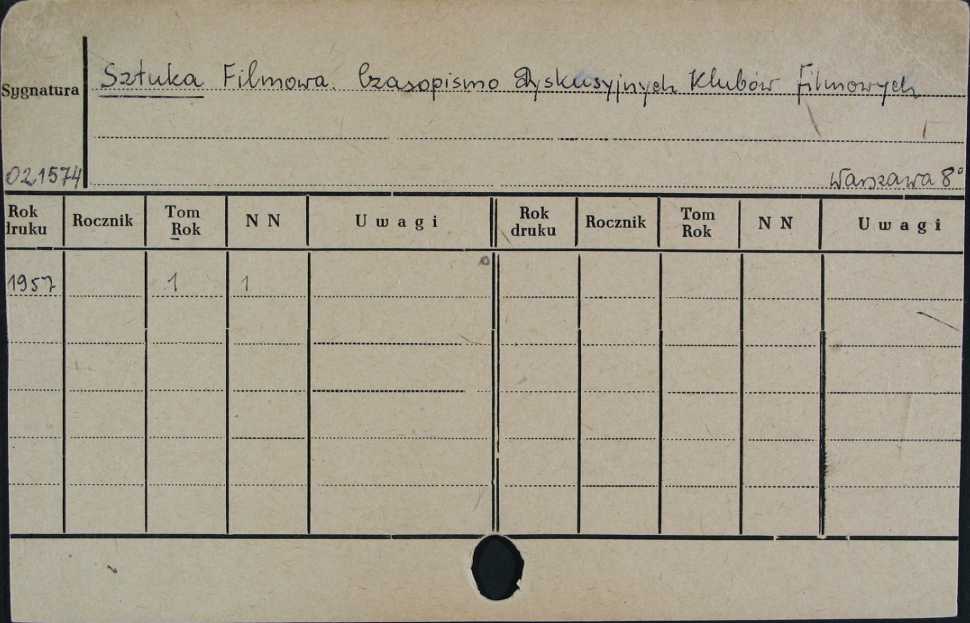 Sygnatura
Sztuka Filmowa. Czasopismo Dyskusyjnych Klubów Filmowych
021574
Warszawa 8°
Rok druku Rocznik Tom Rok N N Uwagi Rok druku Rocznik Tom Rok N N Uwagi
1957 1 1